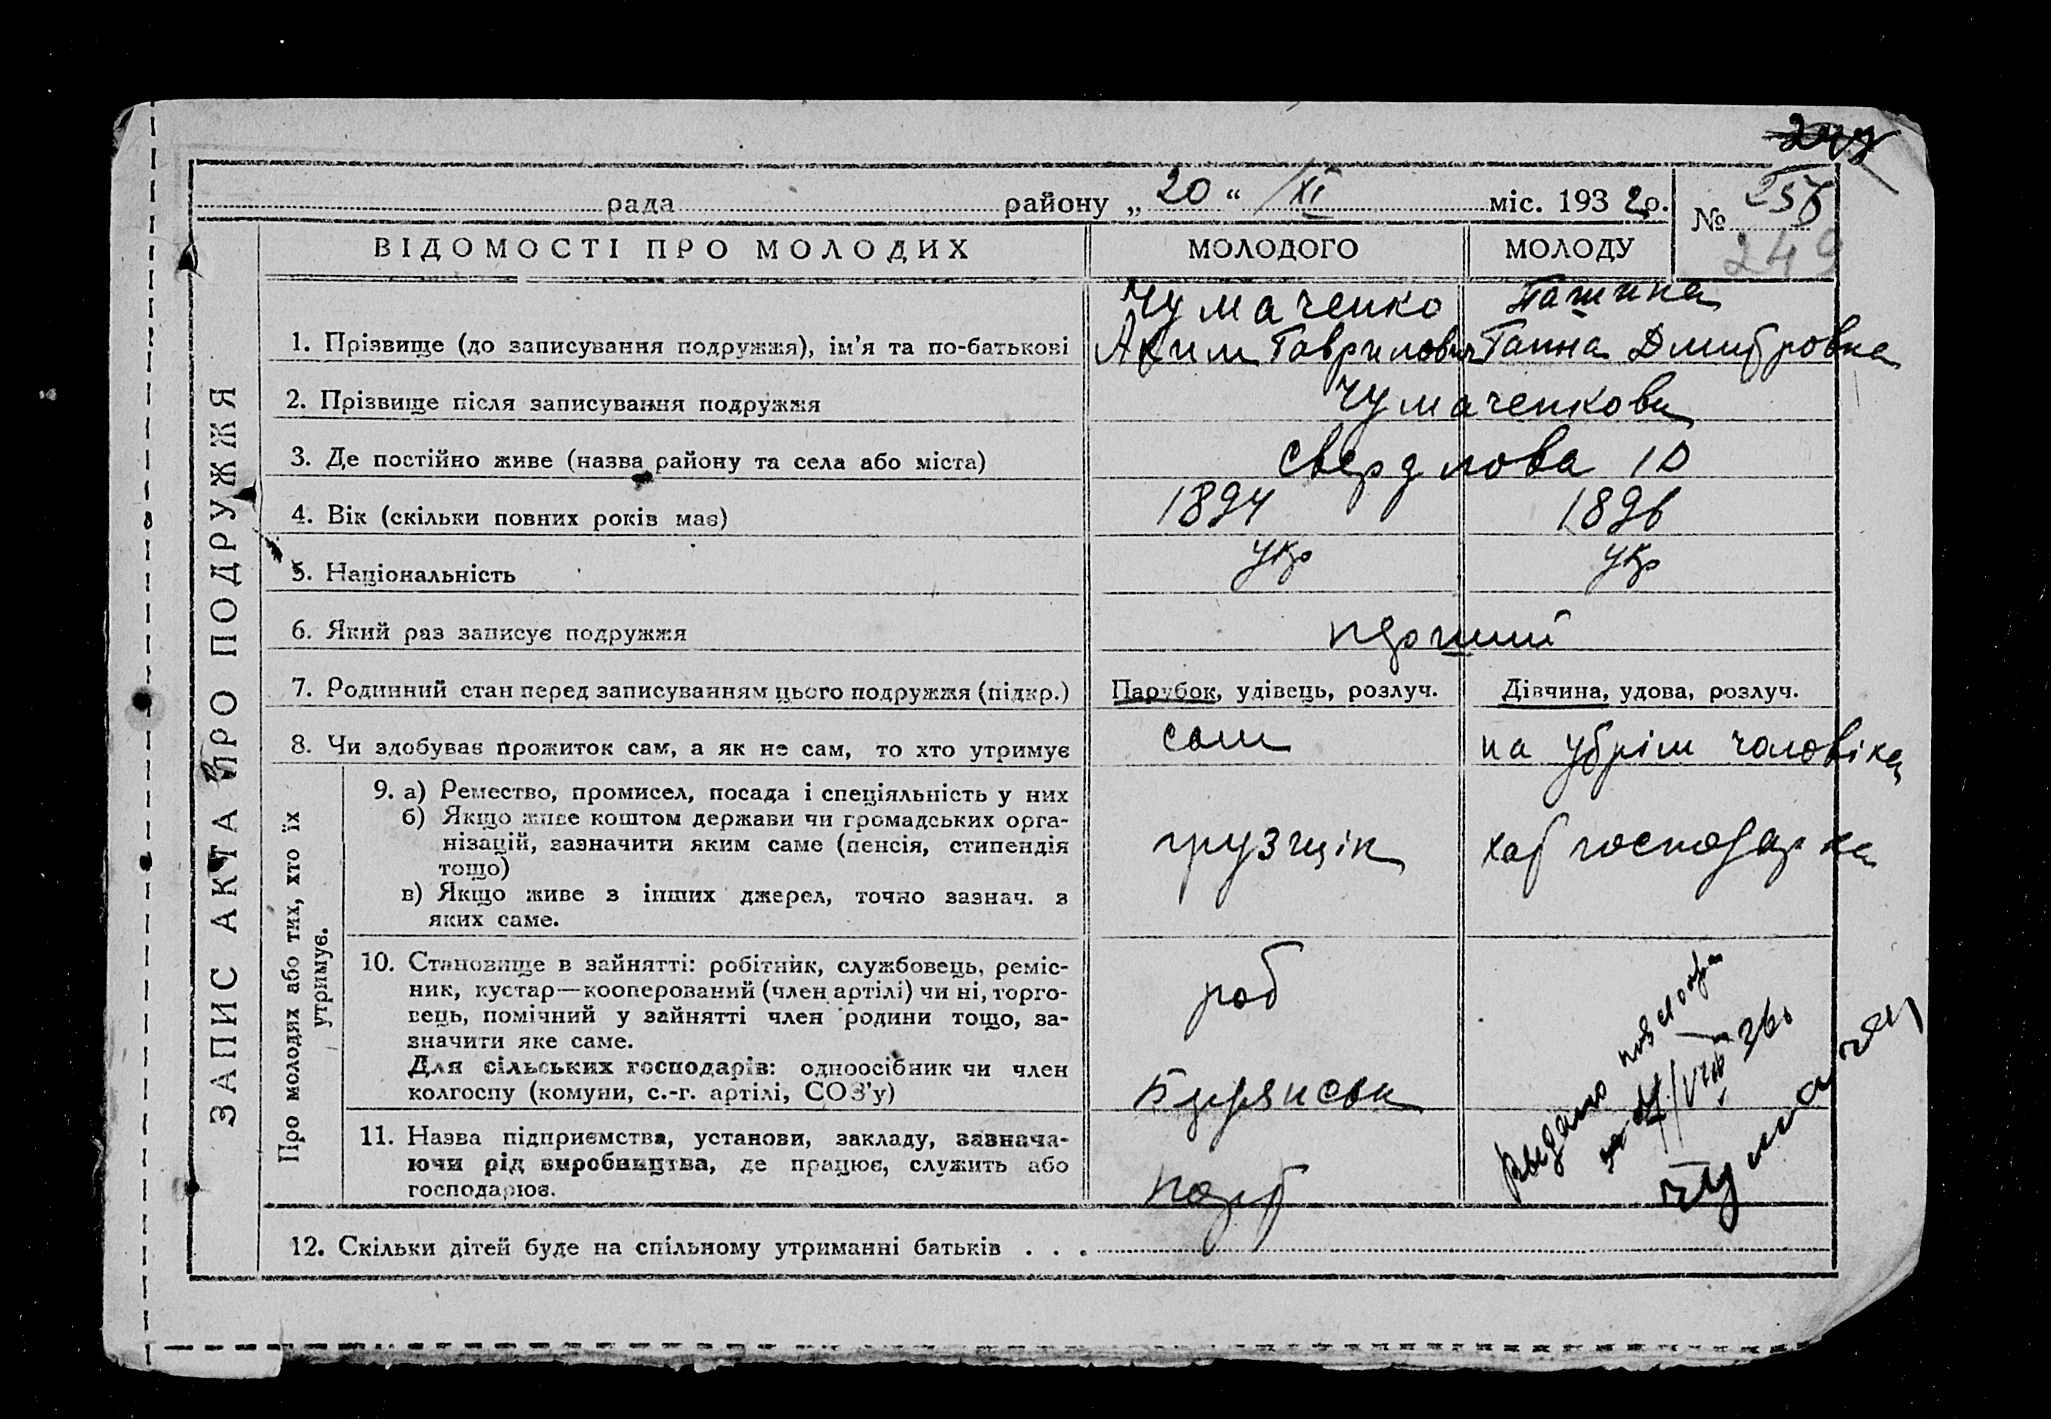 247
рада району „ 20 “ /XI міс. 1932 р.
№ 256
249
ЗАПИС АКТА ПРО ПОДРУЖЖЯ
ВІДОМОСТІ ПРО МОЛОДИХ МОЛОДОГО МОЛОДУ
Чумаченко Пашина
1. Прізвище (до записування подружжя), ім’я та по-батькові Аким Гаврилович Ганна Дмитровна
2. Прізвище після записування подружжя Чумаченкови
3. Де постійно живе (назва району та села або міста) Свердлова 10
4. Вік (скільки повних років має) 1894 1896
5. Національність укр укр
6. Який раз записує подружжя перший
7. Родинний стан перед записуванням цього подружжя (підкр.) Парубок, удівець, розлуч. Дівчина, удова, розлуч.
8. Чи здобуває прожиток сам, а як не сам, то хто утримує сам на утрім чоловіка
Про молодих або тих, хто їх утримує.
9. а) Ремество, промисел, посада і спеціяльність у них
б) Якщо живе коштом держави чи громадських орга-
нізацій, зазначити яким саме (пенсія, стипендія
тощо) грузщік хат господарка
в) Якщо живе з інших джерел, точно зазнач. з
яких саме.
10. Становище в зайнятті: робітник, службовець, реміс-
ник, кустар—кооперований (член артілі) чи ні, торго- роб
вець, помічний у зайнятті член родини тощо, за-
значити яке саме.
Для сільських господарів: одноосібник чи член
колгоспу (комуни, с.-г. артілі, СОЗ’у)
11. Назва підприємства, установи, закладу, зазнача-
ючи рід виробництва, де працює, служить або
господарює.
Выдано
12. Скільки дітей буде на спільному утриманні батьків . . .